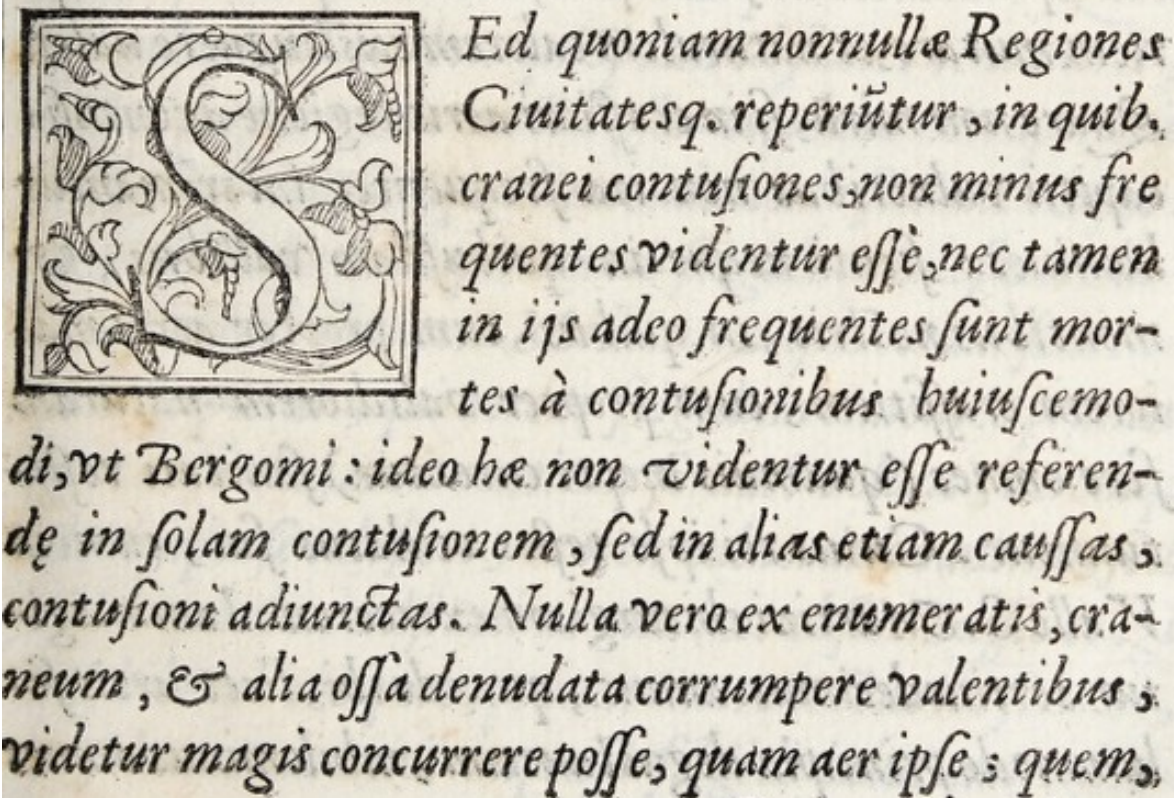 SEd quoniam nonnullæ Regiones
Ciuitatesq. reperiũtur, in quib.
cranei contuſiones, non minus fre
quentes videntur eſſè, nec tamen
in ijs adeo frequentes ſunt mor-
tes à contuſionibus huiuſcemo-
di, vt Bergomi: ideo hæ non videntur eſſe referen-
dę in ſolam contuſionem, ſed in alias etiam cauſſas,
contuſioni adiunctas. Nulla vero ex enumeratis, cra-
neum, & alia oſſa denudata corrumpere valentibus,
videtur magis concurrere poſſe, quam aer ipſe; quem,